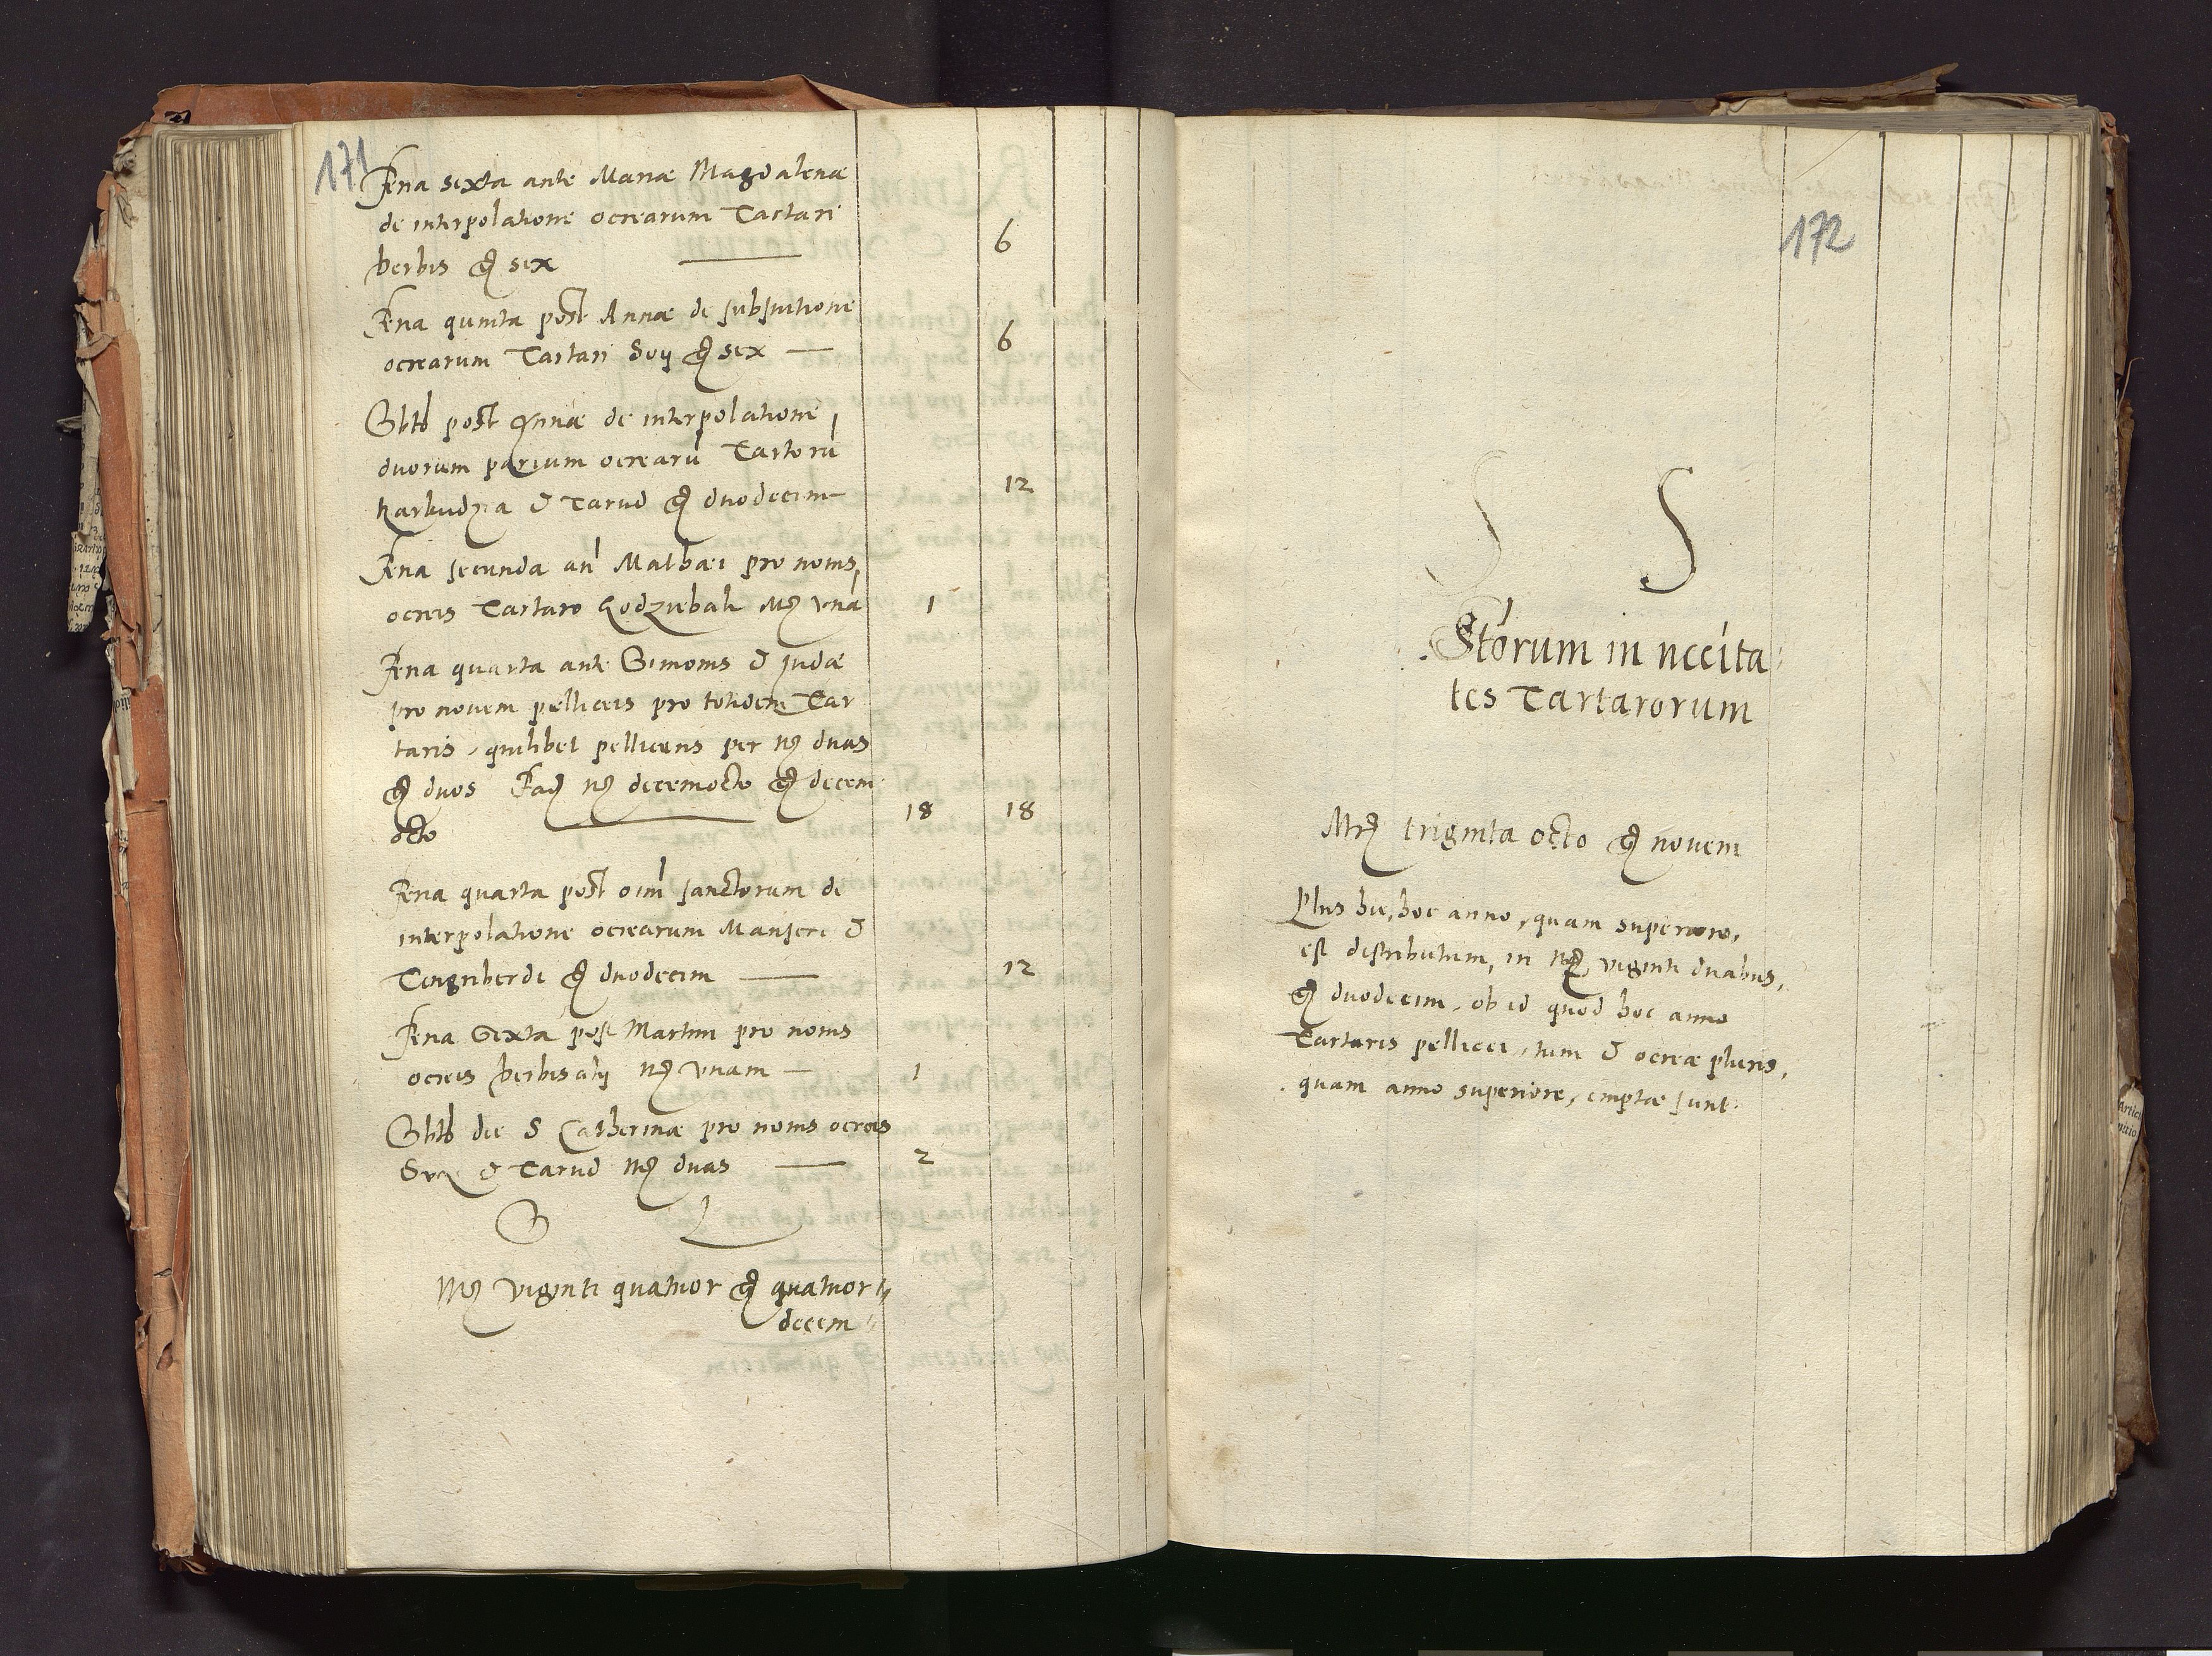 171
Feria sexta ante Mariæ Magdalenæ
de interpolatione ocrearum Tartari
berbis gr sex 6
Feria quinta post Annæ de subsutione
ocrearum Tartari Soij gr sex 6
Sbbto post Annæ de interpolatione
duorum parium ocrearu Tartoru
Karkudza & Tarud gr duodecim 12
Feria secunda an Mathæi pro novis
ocreis Tartaro Kodzubali Mrc vna 1
Feria quarta ante Simonis & Judæ
pro novem pelliceis pro totidem Tar
taris, quilibet pelliceus per Mrc duas
gr duos Fac Mrc decemocto gr decem
octo 18 18
Feria quarta post oim sanctorum de
interpolatione ocrearum Mansere &
Tengriberdi gr duodecim 12
Feria Sexta post Martini pro novis
ocreis berbis alij Mrc vnam 1
Sbbto die S Catherinæ pro novis ocreis
& Tarud Mrc duas 2
S
Mrc viginti quatuor gr quatuor
decem
172
S S
Storum in nccita
tes Tartarorum
Mrc triginta octo gr novem
Plus hic, hoc anno, quam superiore,
est distributum, in Mrc viginti duabus,
gr duodecim, ob id quod hoc anno
Tartaris pellicei, tum & ocreæ pluris,
quam anno superiore, emptæ sunt.